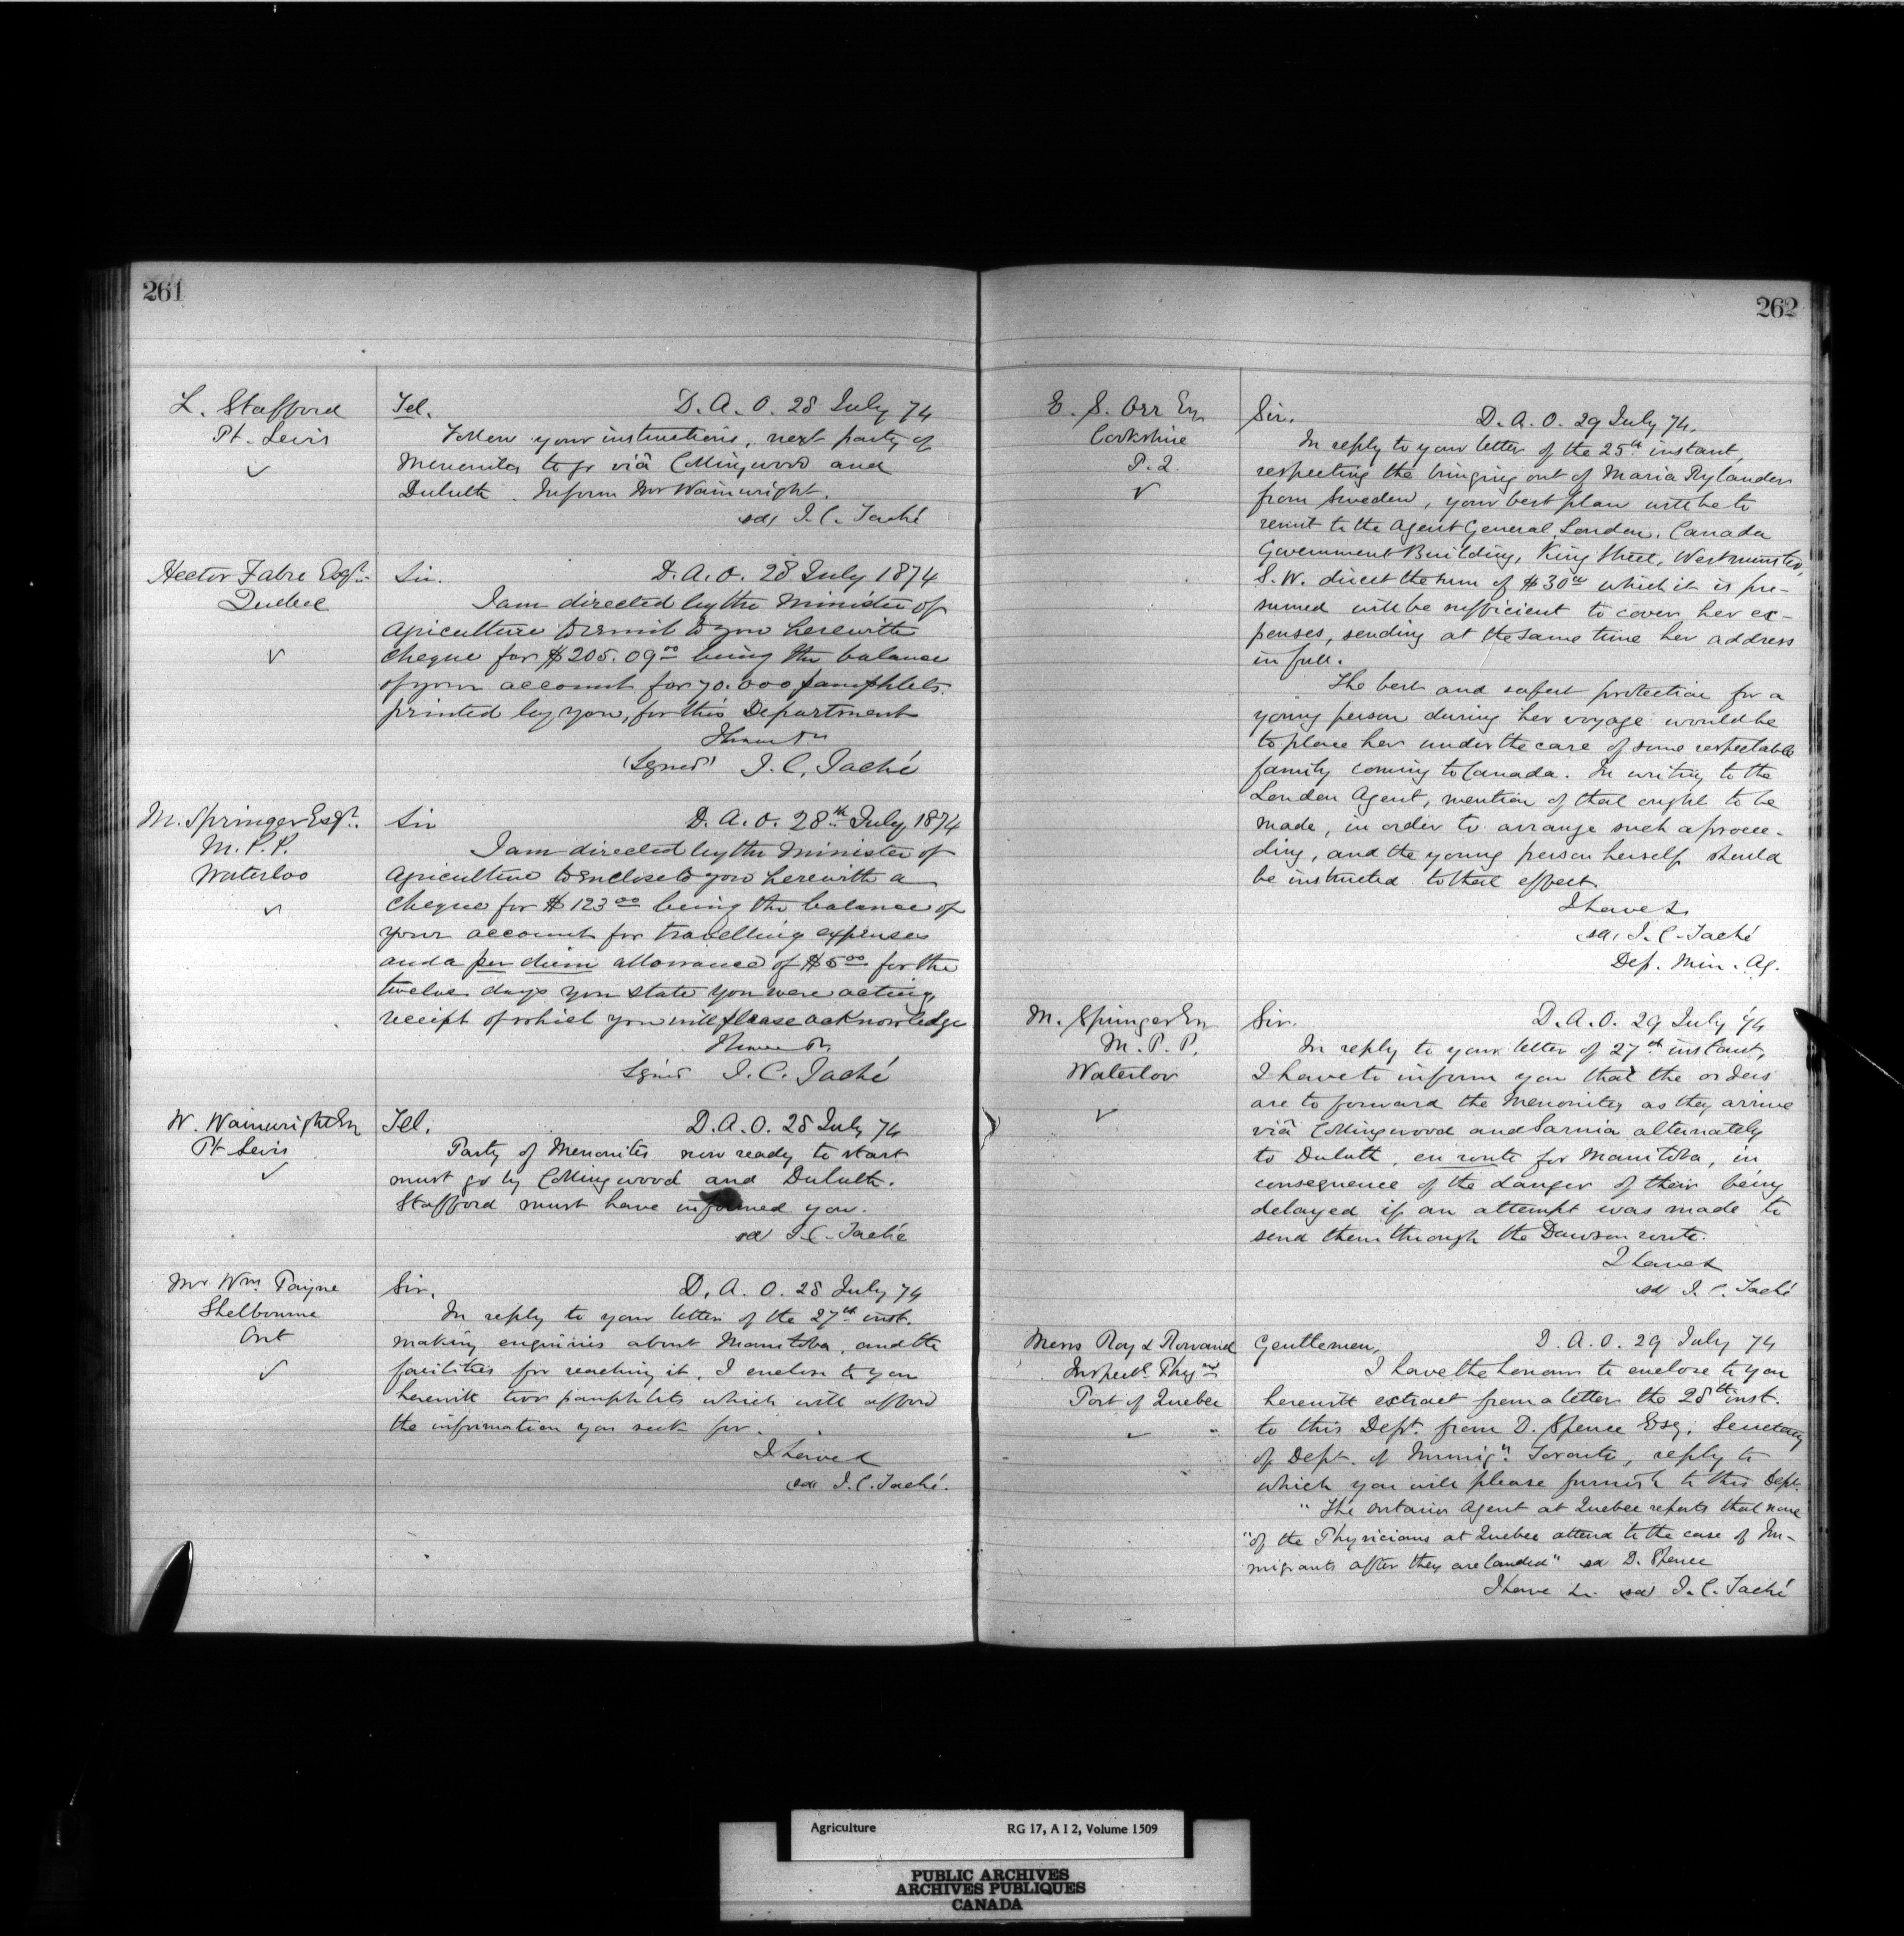 261
L. Stafford
Pt. Levis
✓
Tel. D. A. O. 28 July 74
Follow your instructions, next party of
Menonites to go viâ Collingwood and
Duluth. Inform Mr Wainwright.
sd, J. C. Taché
Hector Fabre Esqr.
Quebec
✓
Sir. D. A. O. 28 July 1874
I am directed by the Minister of
Agriculture to remit to you herewith
cheque for $205.09 00 being the balance
of your account for 70.000 pamphlets
printed by you, for this Department
I have &c
(Signed) J. C. Taché
M. Springer Esqr.
M. P. P.
Waterloo
✓
Sir D. A. O. 28th July, 1874
I am directed by the Minister of
Agriculture to enclose to you herewith a
Cheque for $123 00 being the balance of
your account for travelling expenses
and a per diem allowance of $5 00 for the
twelve days you state you were acting,
receipt of which you will please acknowledge
I have &c
Signed J. C. Taché
W. Wainwright Esq
Pt Levis
✓
Tel. D. A. O. 28 July 74
Party of Menonites now ready to start
must go by Collingwood and Duluth.
Stafford must have informed you.
sd J. C. Taché
Mr Wm Payne
Shelbourne
Ont
✓
Sir, D. A. O. 28 July 74
In reply to your letter of the 27th inst.
making enquiries about Manitoba, and the
facilities for reaching it, I enclose to you
herewith two pamphlets which will afford
the information you seek for.
I have &
sd J. C. Taché.
262
E. S. Orr Esq
Cookshire
P. Q.
✓
Sir. D. A. O. 29 July 74.
In reply to your letter of the 25th instant,
respecting the bringing out of Maria Rylander
from Sweden, your best plan will be to
remit to the Agent General, London, Canada
Government Building, King Street, Westminster,
S. W. direct the sum of $30 00 which it is pre-
sumed will be sufficient to cover her ex-
penses, sending at the same time her address
in full.
The best and safest protection for a
young person during her voyage would be
to place her under the care of some respectable
family coming to Canada. In writing to the
London Agent, mention of that ought to be
made, in order to arrange such a procee-
ding, and the young person herself should
be instructed to that effect.
I have &c
sd, J. C. Taché
Dep. Min. Ag.
M. Springer Esq
M. P. P.
Waterloo
✓
Sir. D. A. O. 29 July 74
In reply to your letter of 27th instant,
I have to inform you that the orders
are to forward the Menonites as they arrive
viâ Collingwood and Sarnia alternately
to Duluth, en route for Manitoba, in
consequence of the danger of their being
delayed if an attempt was made to
send them through the Dawson route.
I have &
sd J. C. Taché
Messrs Roy & Rowand
Inspectg Physns
Port of Quebec
✓
Gentlemen, D. A. O. 29 July 74
I have the honour to enclose to you
herewith extract from a letter the 28th inst.
to this Dept. from D. Spence Esq. Secretary
of Dept. of Immign. Toronto, reply to
which you will please furnish to this Dept.
"The Ontario Agent at Quebec reports that none
"of the Physicians at Quebec attend to the case of Im-
migrants after they are landed" sd D. Spence
I have &c sd J. C. Taché
Agriculture RG 17, A I 2, Volume 1509
PUBLIC ARCHIVES
ARCHIVES PUBLIQUES
CANADA